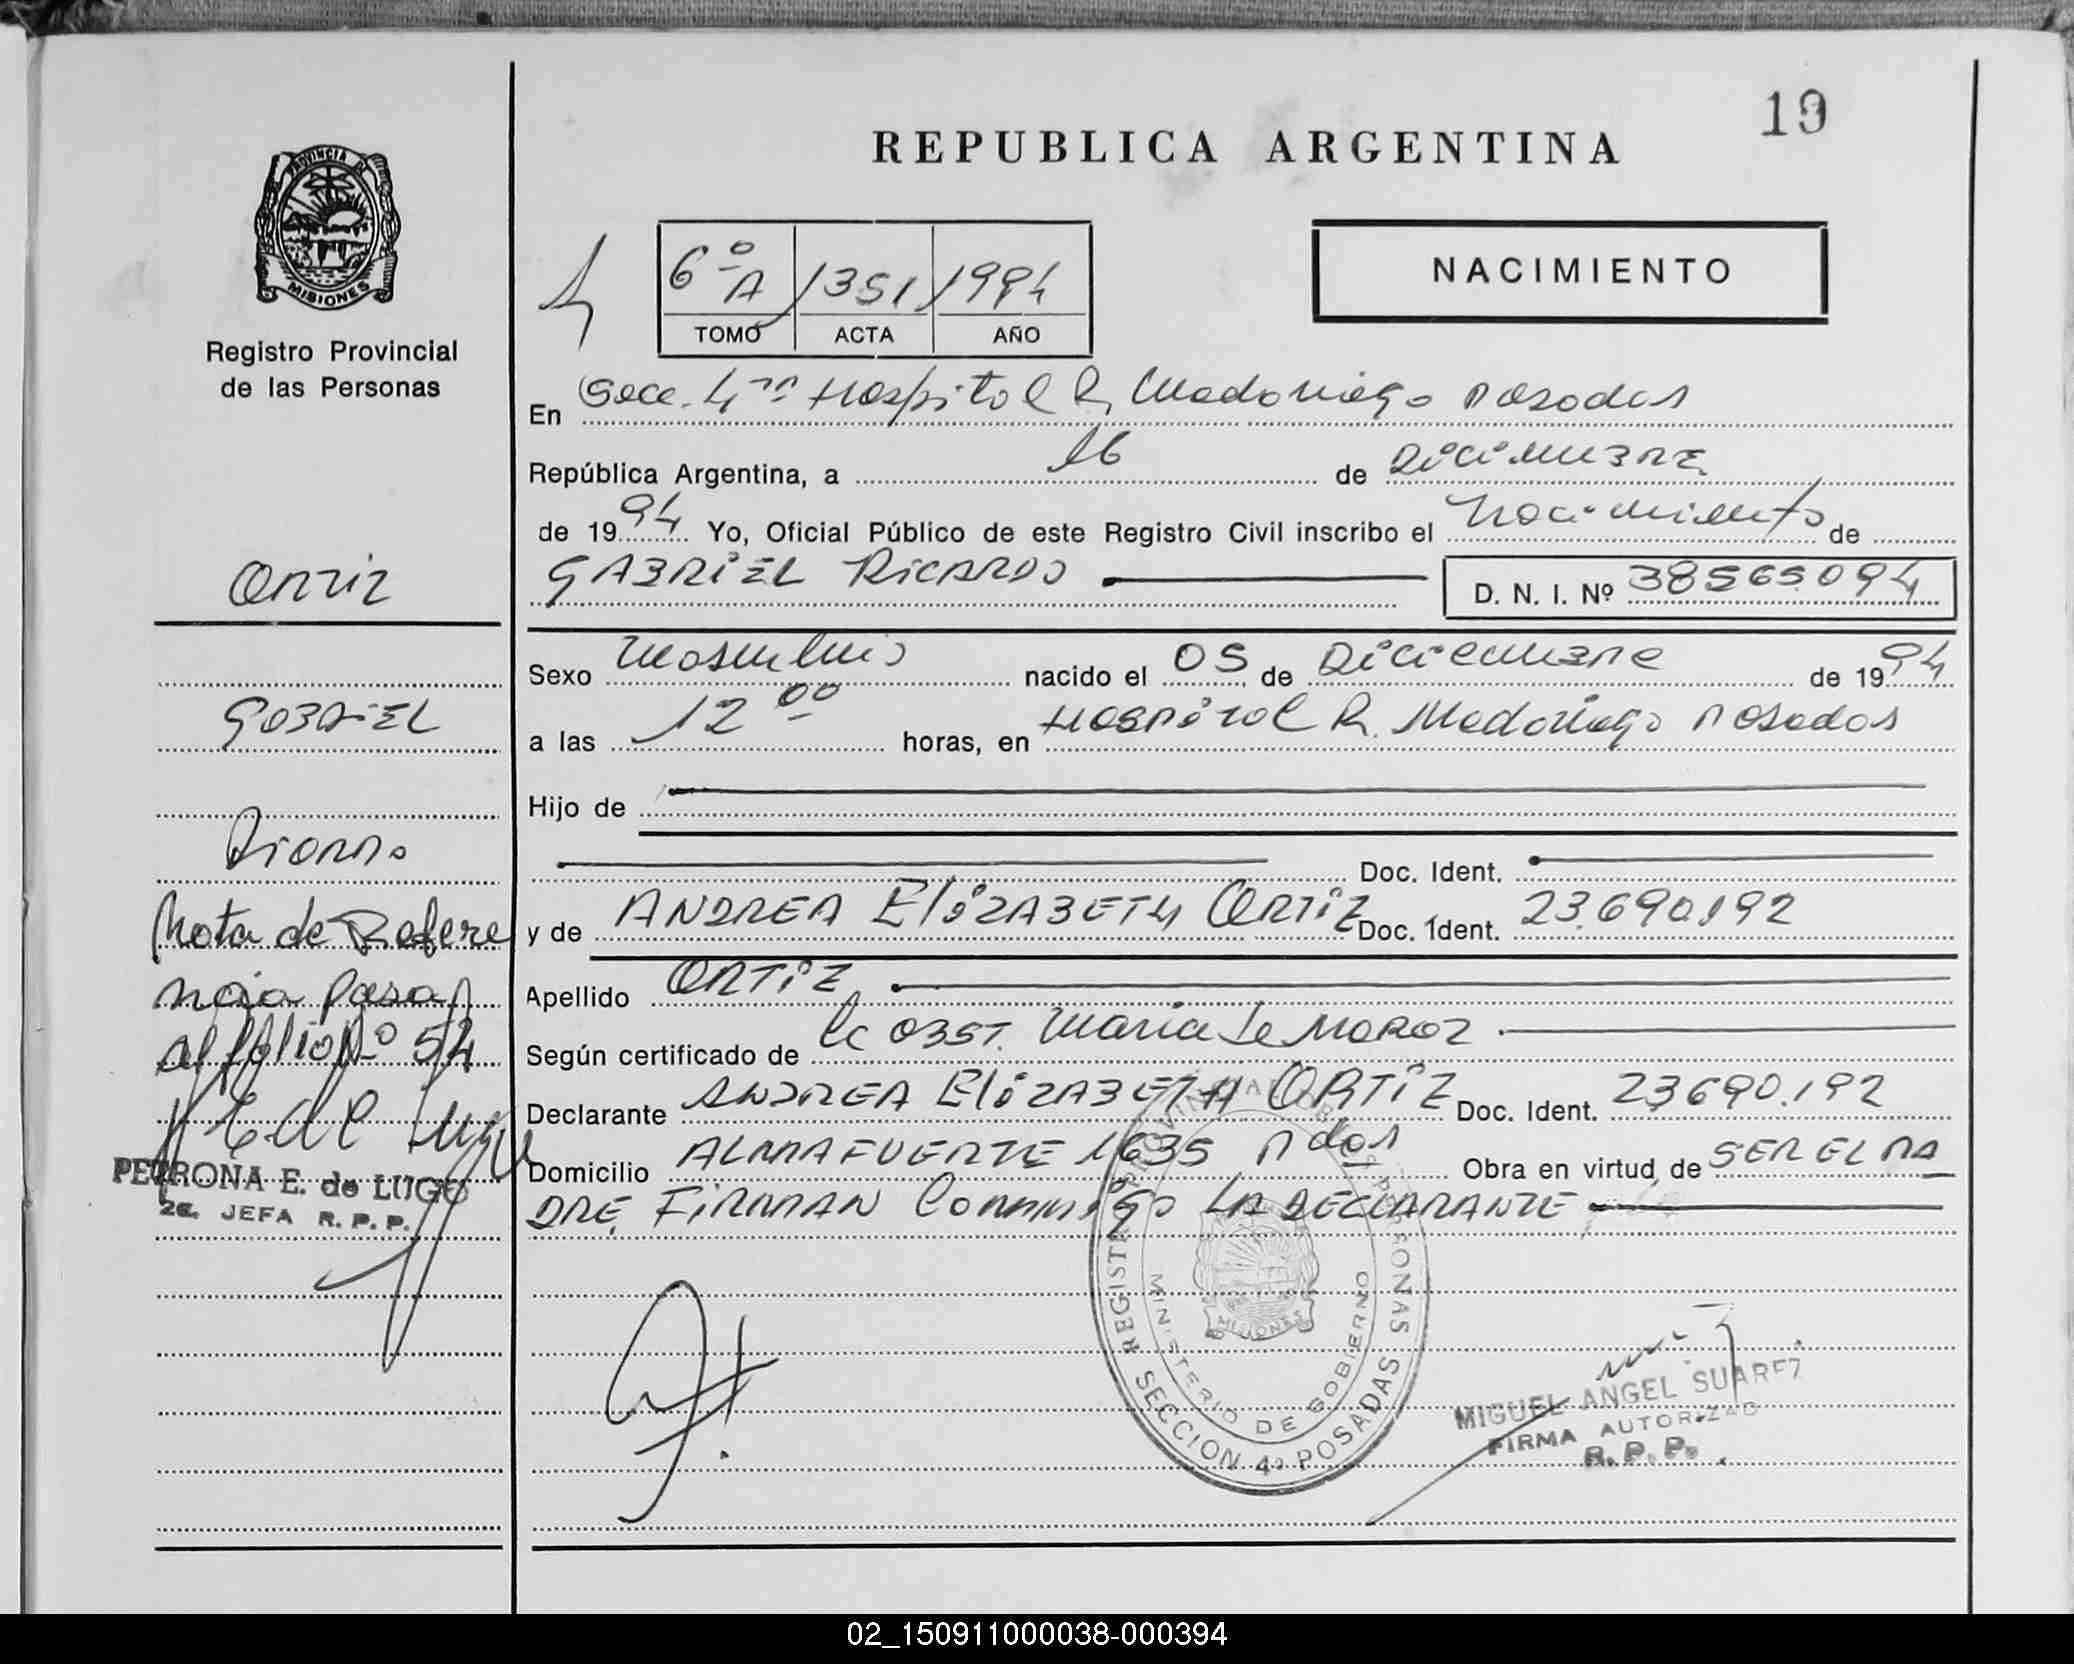 19
REPUBLICA ARGENTINA
PROVINCIA DE
MISIONES
Registro Provincial
de las Personas
6º A 1351 1994
TOMO ACTA AÑO
NACIMIENTO
En Secc. 4ta Hospital R. Madariaga Posadas
República Argentina, a 16 de Diciembre
de 1994 Yo, Oficial Público de este Registro Civil inscribo el Nacimiento de
GABRIEL RICARDO D. N. I. Nº 38565094
Sexo Masculino nacido el 05 de Diciembre de 1994
a las 12 00 horas, en Hospital R. Madariaga Posadas
Hijo de
Doc. Ident.
y de ANDREA ELIZABETH ORTIZ Doc. Ident. 23.690.192
Apellido ORTIZ
Según certificado de Lc OBST. Maria de
Declarante ANDREA ELIZABETH ORTIZ Doc. Ident. 23.690.192
Domicilio ALMAFUERTE 1635 Pdas Obra en virtud de SER EL MA
DRE, FIRMAN CONMIGO LA DECLARANTE
Ortiz
Gabriel
Nota de Refere
ncia pasa
al folio Nº 54
PETRONA E. de LUGO
2a. JEFA R. P. P.
REGISTRO PROVINCIAL DE LAS PERSONAS
SECCION 4º POSADAS
MINISTERIO DE GOBIERNO
MISIONES
MIGUEL ANGEL SUAREZ
FIRMA AUTORIZAD
R. P. P.
02_150911000038-000394